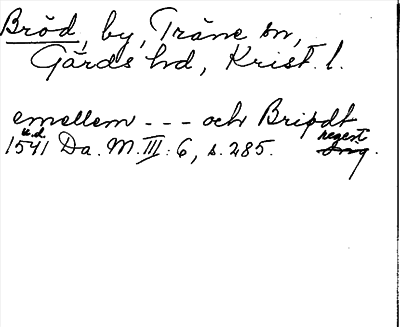 Bröd, by, Träne sn,
Gärds hd, Krist. l.
emellem - - - och Bripdt
u.d. regest
1541 Da. M. III: 6, s. 285. orig.